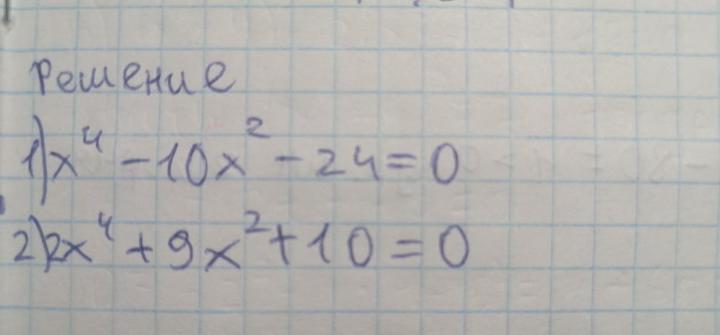 Решение
1) x⁴ - 10x² - 24 = 0
2) 2x⁴ + 9x² + 10 = 0